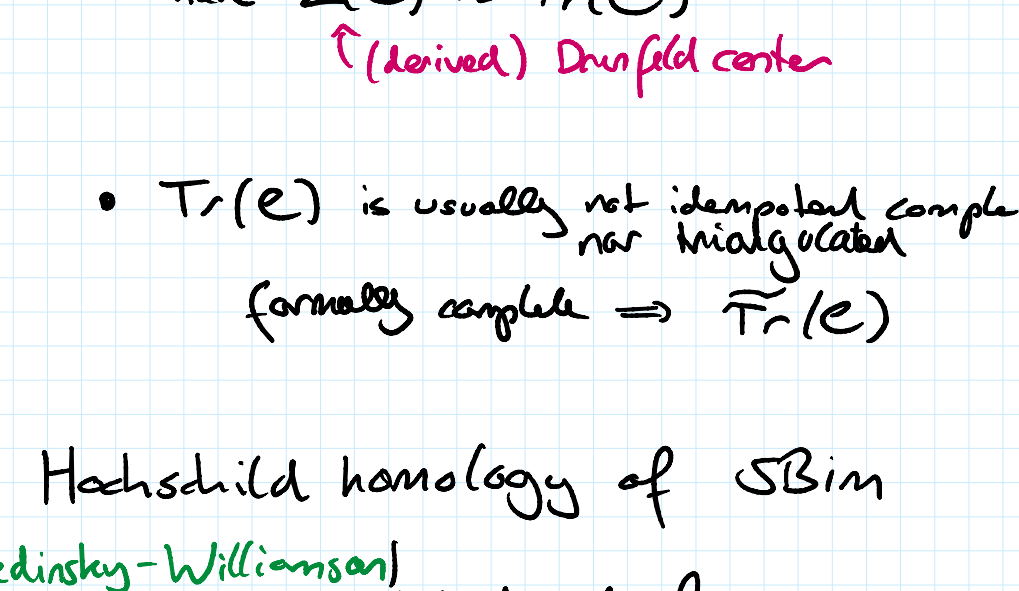 (derived) Drinfeld center
• Tr(C) is usually not idempotent comple
nor triangulated
formally complete ⟹ T̃r(C)
Hochschild homology of SBim
edinsky-Williamson